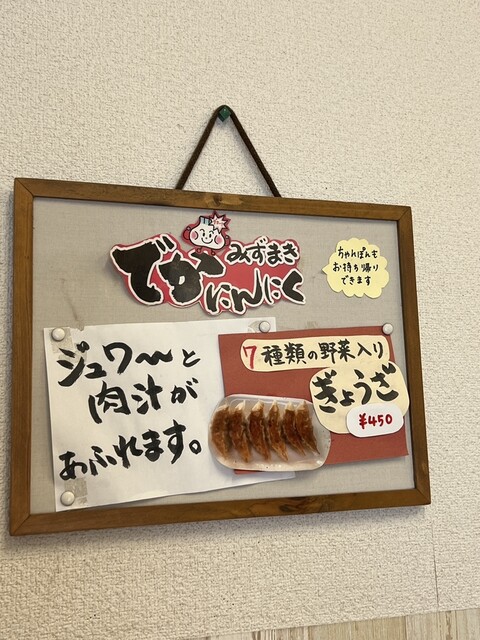 みずまき
でかにんにく
ちゃんぽんも
お持ち帰り
できます
ジュワ〜と
肉汁が
あふれます。
7種類の野菜入り
ぎょうざ
¥450